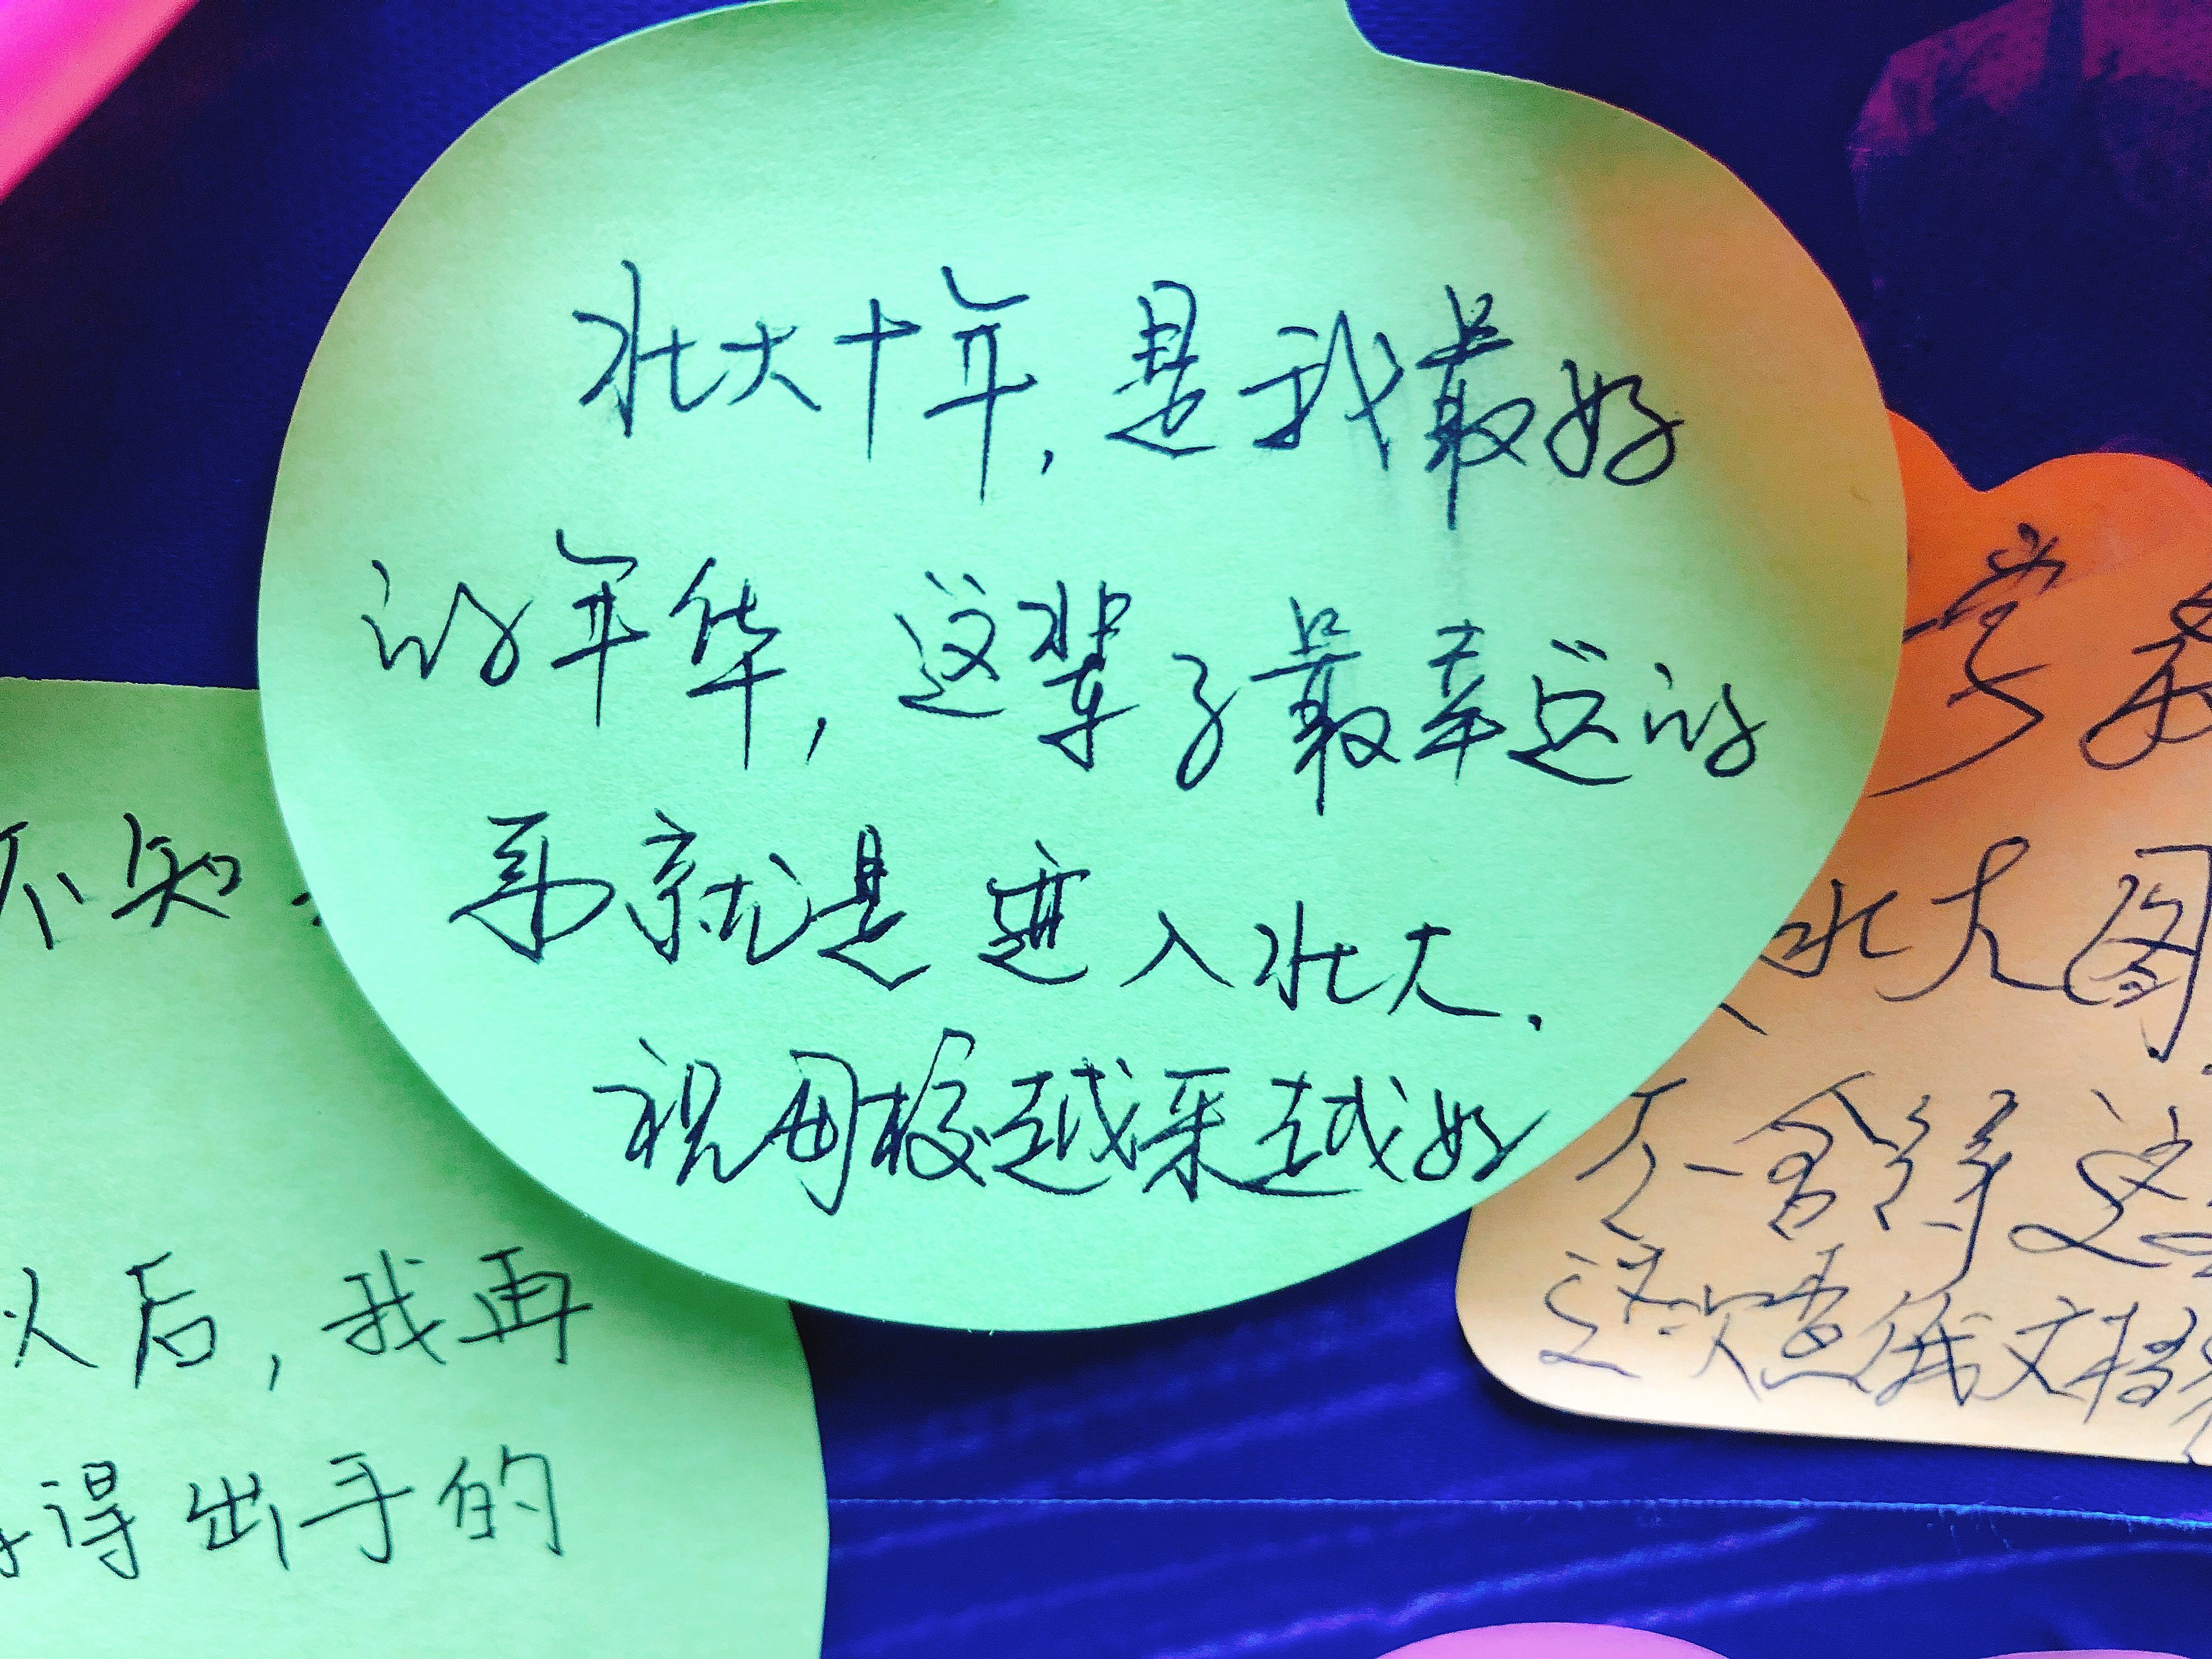 北大十年，是我最好
的年华，这辈子最幸运的
事就是进入北大.
祝母校越来越好
不知
以后，我再
得出手的
北大图
不舍得这
这次查俄文档